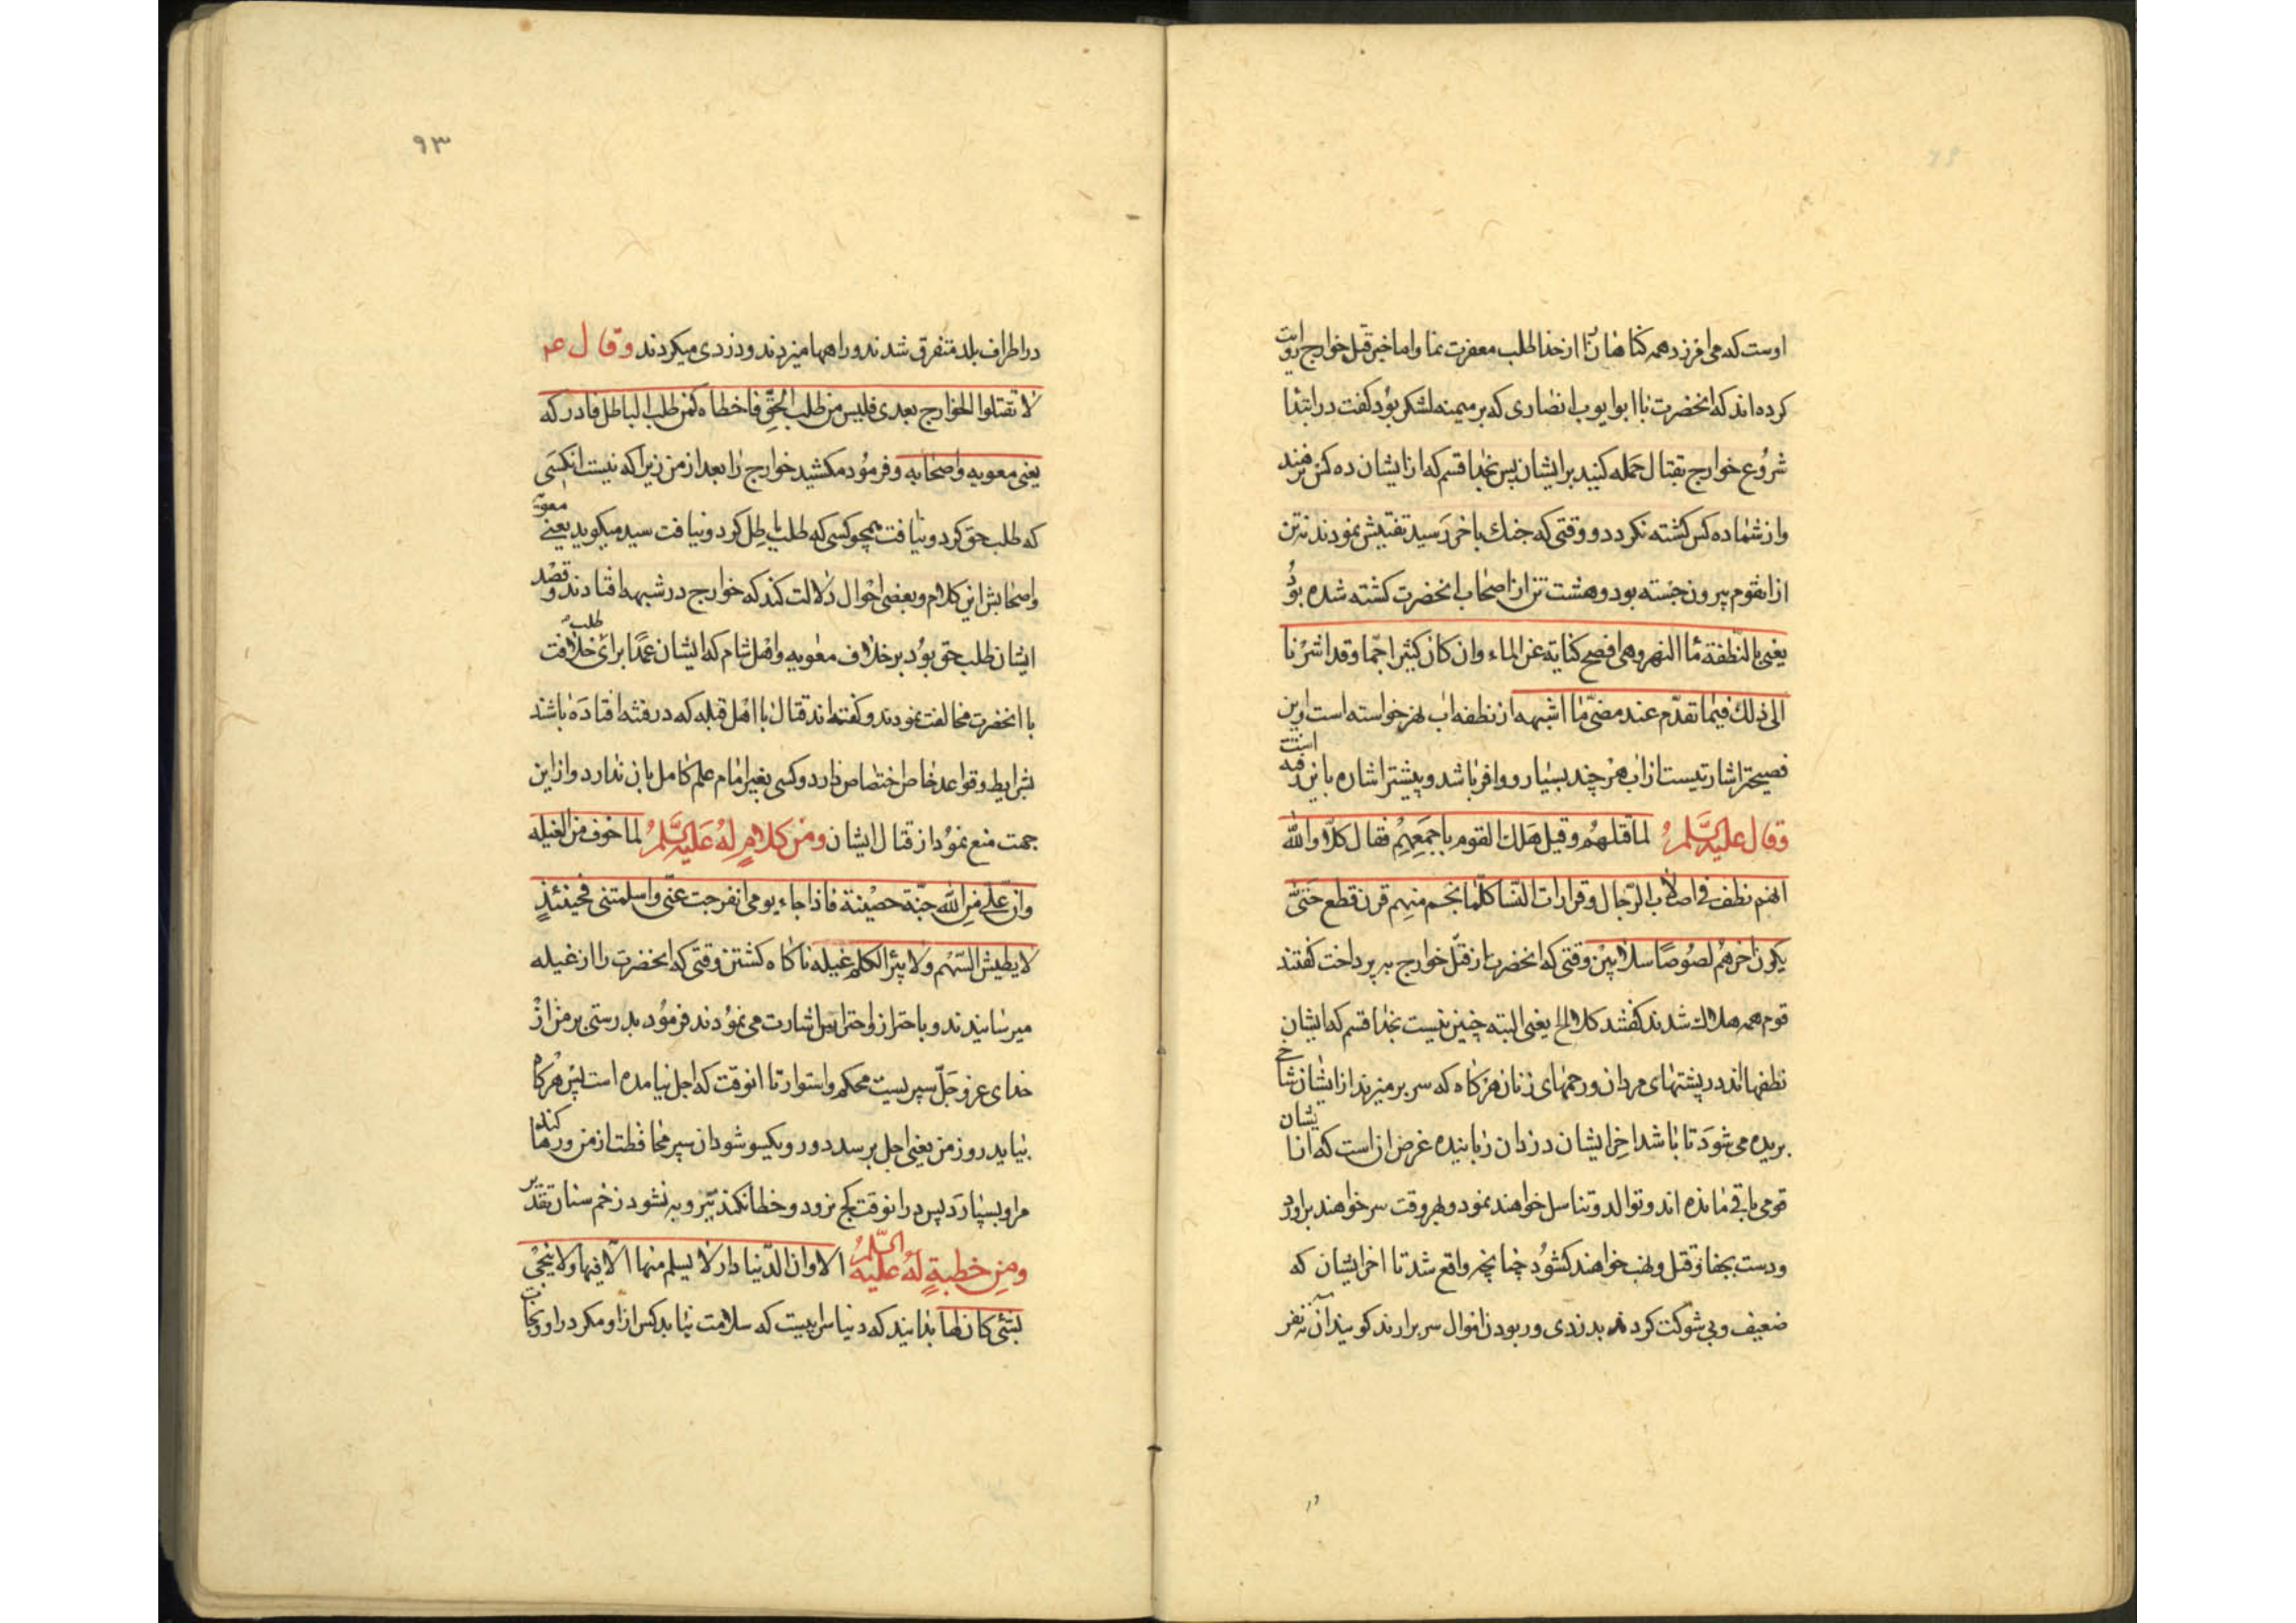 اوست که می امرزد همه کناهان را از خدا طلب مغفرت نما واما خبر قبل خوارج روایت
کرده اند که انحضرت با ابو ایوب انصاری که بر میمنه لشکر بود کفت در ابتدا
شروع خوارج بقتال حمله کنید بر ایشان پس بخدا قسم که از ایشان ده کس نرهند
واز شما ده کس کشته نکردد و وقتی که جنك باخر رسید تفتیش نمودند نه تن
از انقوم بیرون جسته بود و هشت تن از اصحاب انحضرت کشته شده بود
یعنی بالنطفة ماٴ النهر وهی افصح کنایة عن الماء وان کان کثیرا جما وقد اشرنا
الی ذلك فیما تقدم عند مضی ما اشبهه از نطفه اب نهر خواسته است واین
فصیحتر اشارتیست از اب هر چند بسیار و وافر باشد و پیشتر اشاره باین رفته است
وقال علیه السلم لما قتلهم وقیل هلك القوم باجمعهم فقال کلا والله
انهم نطف فی اصلاب الرجال وقرارات النسا کلما نجم منهم قرن قطع حتی
یکون اخرهم لصوصا سلابین وقتی که انحضرت از قتل خوارج بپرداخت کفتند
قوم همه هلاك شدند کفتند کلا الخ یعنی البته چنین نیست بخدا قسم که ایشان
نطفها اند در پشتهای مردان ورحمهای زنان هر کاه که سر بر میزند از ایشان شاخی
بریده می شود تا باشد اخر ایشان دزدان رباینده غرض ان است که از ایشان
قومی باقی مانده اند و توالد و تناسل خواهند نمود و بهر وقت سر خواهند براورد
ودست بجفا وقتل ونهب خواهند کشود چنانچه واقع شد تا اخر ایشان که
ضعیف وبی شوکت کردند بدزدی و ربودن اموال سر برارند کویند ان نه نفر
۹۳
در اطراف بلد متفرق شدند وراهها میزدند ودزدی میکردند وقال عم
لا تقتلوا الخوارج بعدی فلیس من طلب الحق فاخطاه کمن طلب الباطل فادرکه
یعنی معویه واصحابه وفرمود مکشید خوارج را بعد از من زیرا که نیست انکسی
که طلب حق کرد ونیافت همچو کسی که طلب باطل کرد ونیافت سید میکوید یعنی معویه
واصحابش این کلام وبعضی احوال دلالت کند که خوارج در شبهه افتادند و قصد
ایشان طلب حق بود بر خلاف معویه واهل شام که ایشان عمدا برای طلب خلافت
با انحضرت مخالفت نمودند وکفته اند قتال با اهل قبله که در فتنه افتاده باشند
بشرایط وقواعد خاص اختصاص دارد وکسی بغیر امام علم کامل بان ندارد واز این
جهت منع نمود از قتال ایشان ومن کلام له علیه السلم لما خوف من الغیله
وان علی من الله جنة حصینة فاذا جاء یومی انفرجت عنی واسلمتنی فحینئذ
لا یطیش السهم ولا یبرٴا الکلم غیله ناکاه کشتن وقتی که انحضرت را از غیله
میرسانیدند و باحتراز واحتراس اشارت می نمودند فرمود بدرستی بر من از
خدای عز وجل سپریست محکم واستوار تا انوقت که اجل نیامده است پس هرکاه
بیاید روز من یعنی اجل برسد دور ویکسو شود ان سپر محافظت از من ورها کند
مرا وبسپارد پس در انوقت کج نرود وخطا نکند تیر وبه نشود زخم سنان تقدیر
ومن خطبة له علیه السلم الا وان الدنیا دار لا یسلم منها الا فیها ولا ینجی
بشیٴ کان لها بدانید که دنیا سراییست که سلامت نیابد کس از او مکر در او ونجات